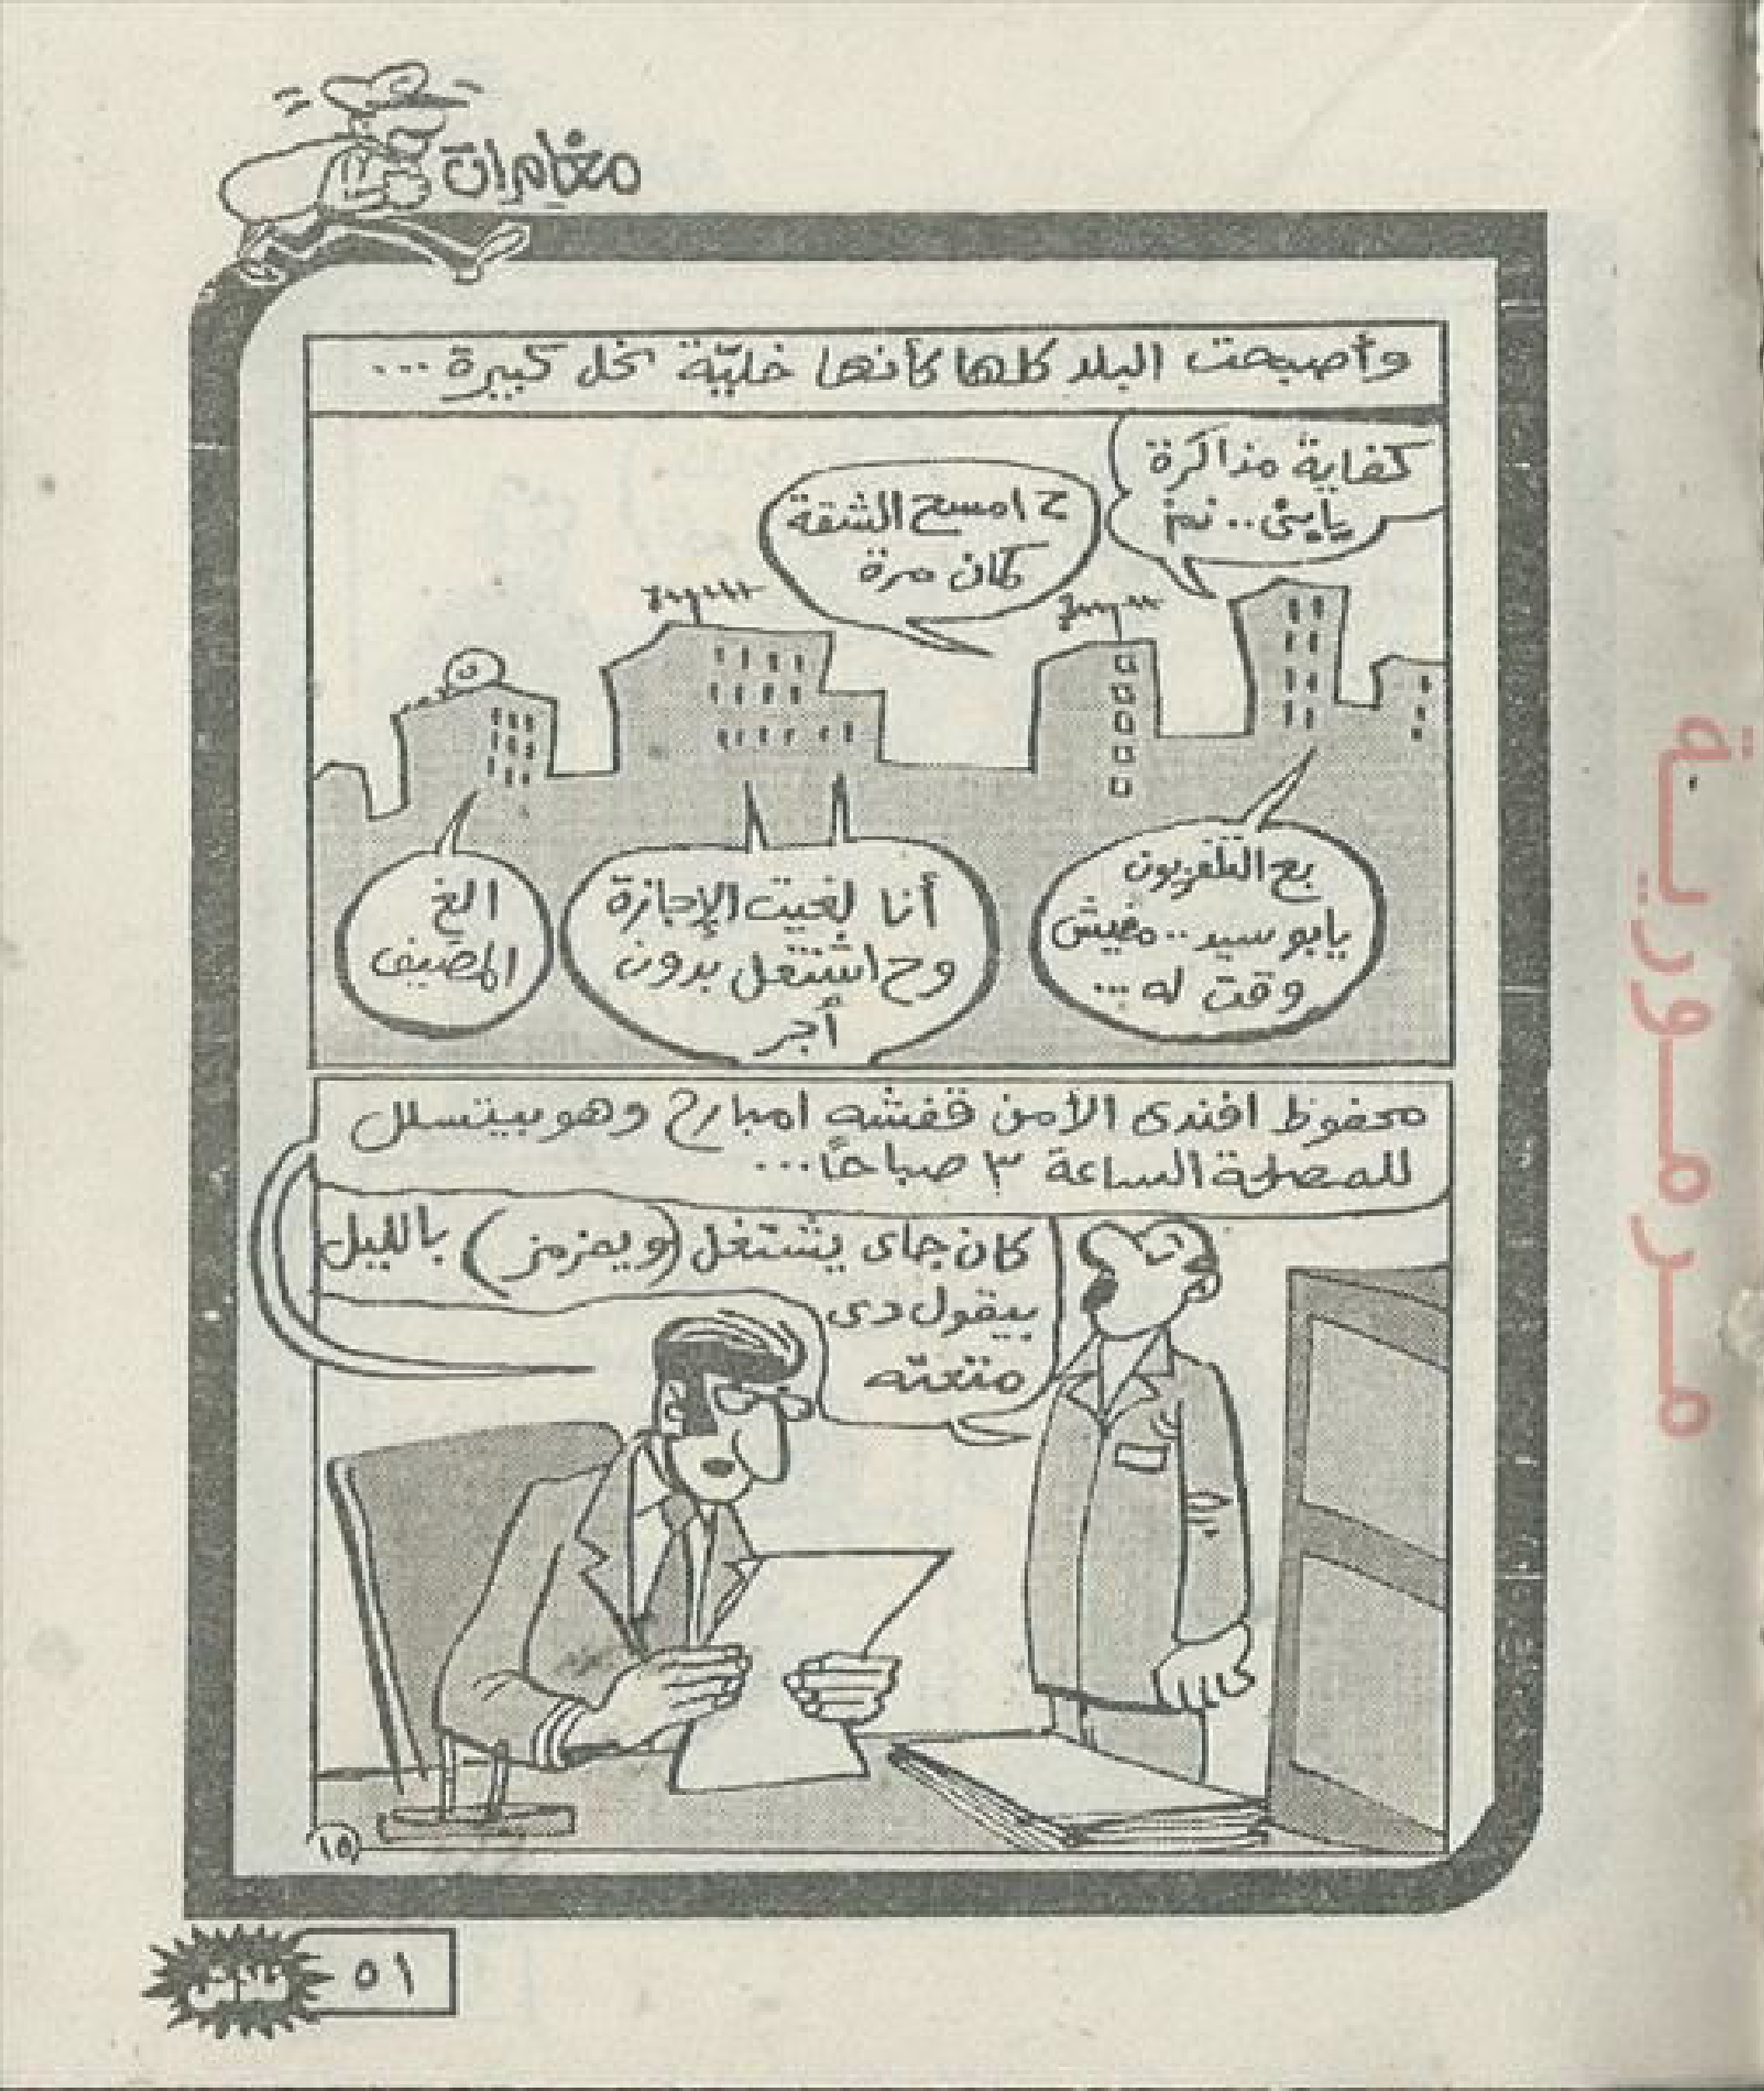 مغامرات
وأصبحت البلد كلها كأنها خليّة نحل كبيرة ...
كفاية مذاكرة
يابنى .. نمز
ح امسح الشقة
كمان مرة
بع التلفزيون
يابو سيد .. مفيش
وقت له ...
أنا لغيت الإجازة
وح اشتغل بدون
أجر
الغ
المصيف
محفوظ افندى الأمن قفشه امبارح وهو بيتسلل
للمصلحة الساعة ٣ صباحاً ...
كان جاى يشتغل (ويمزمز) بالليل
بيقول دى
متعته
١٥
٥١
مرمورية